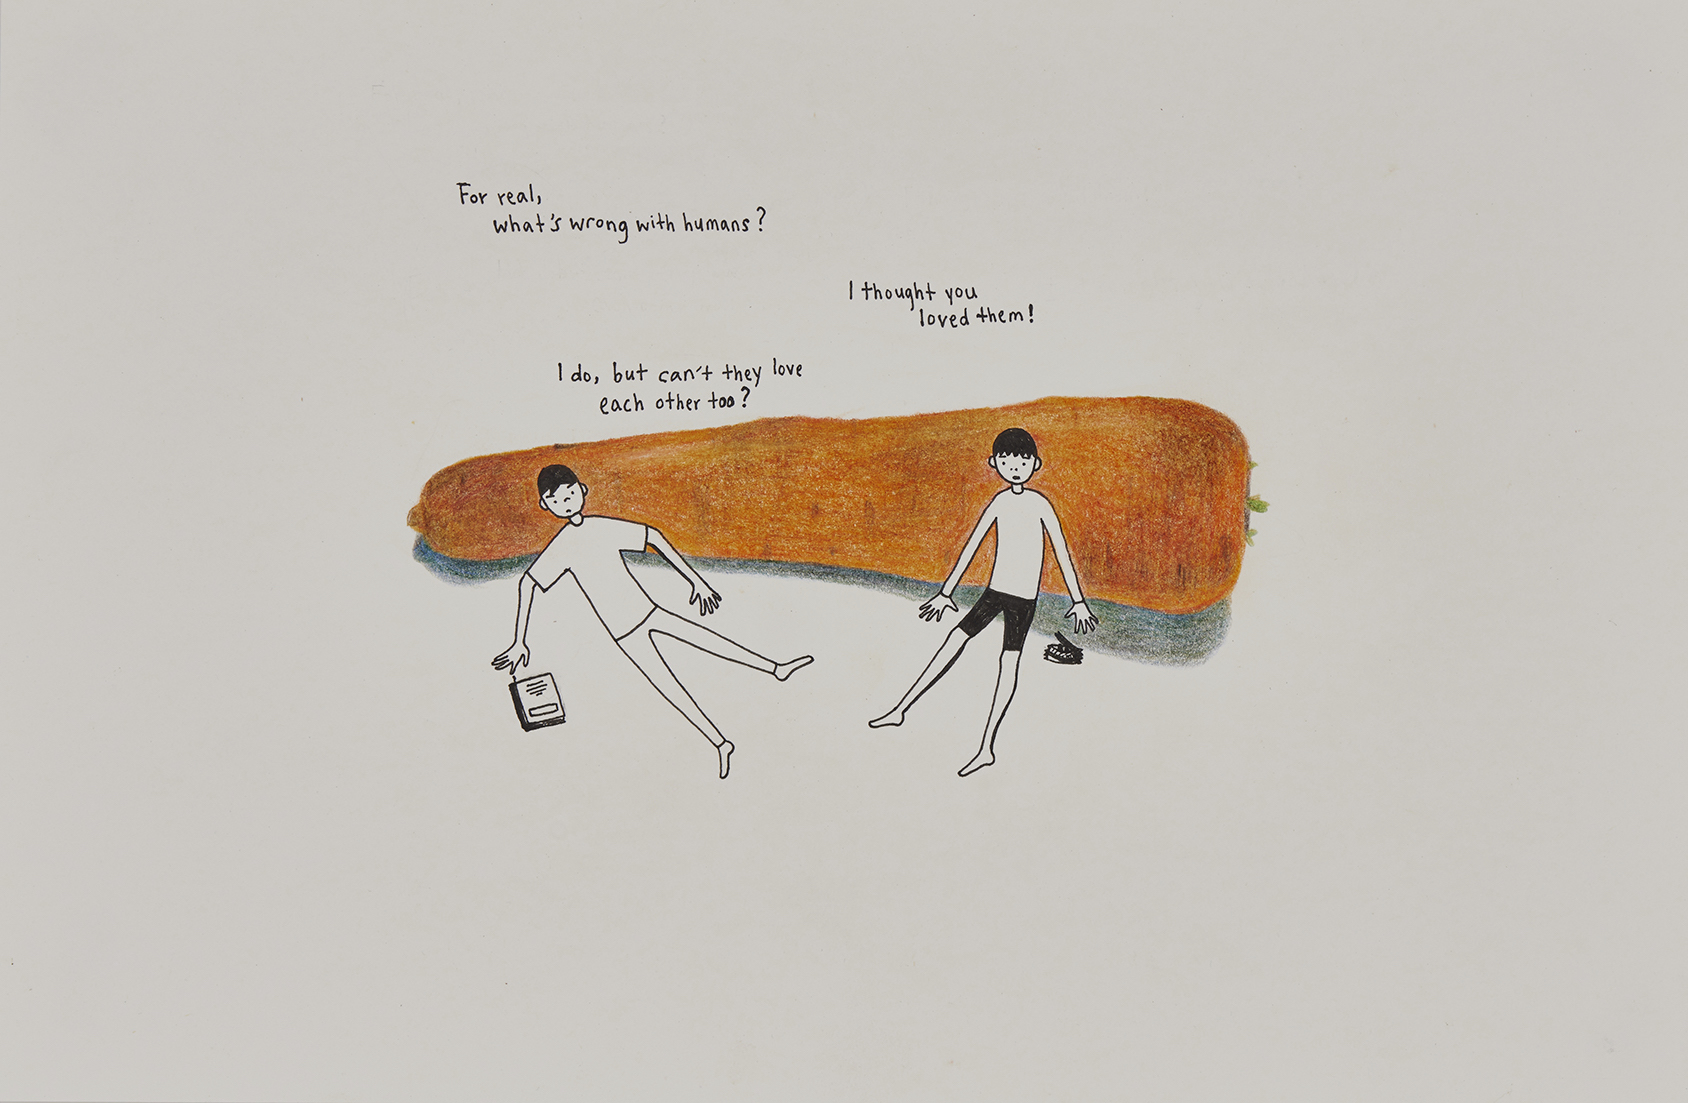 For real,
what's wrong with humans?
I thought you
loved them!
I do, but can't they love
each other too?